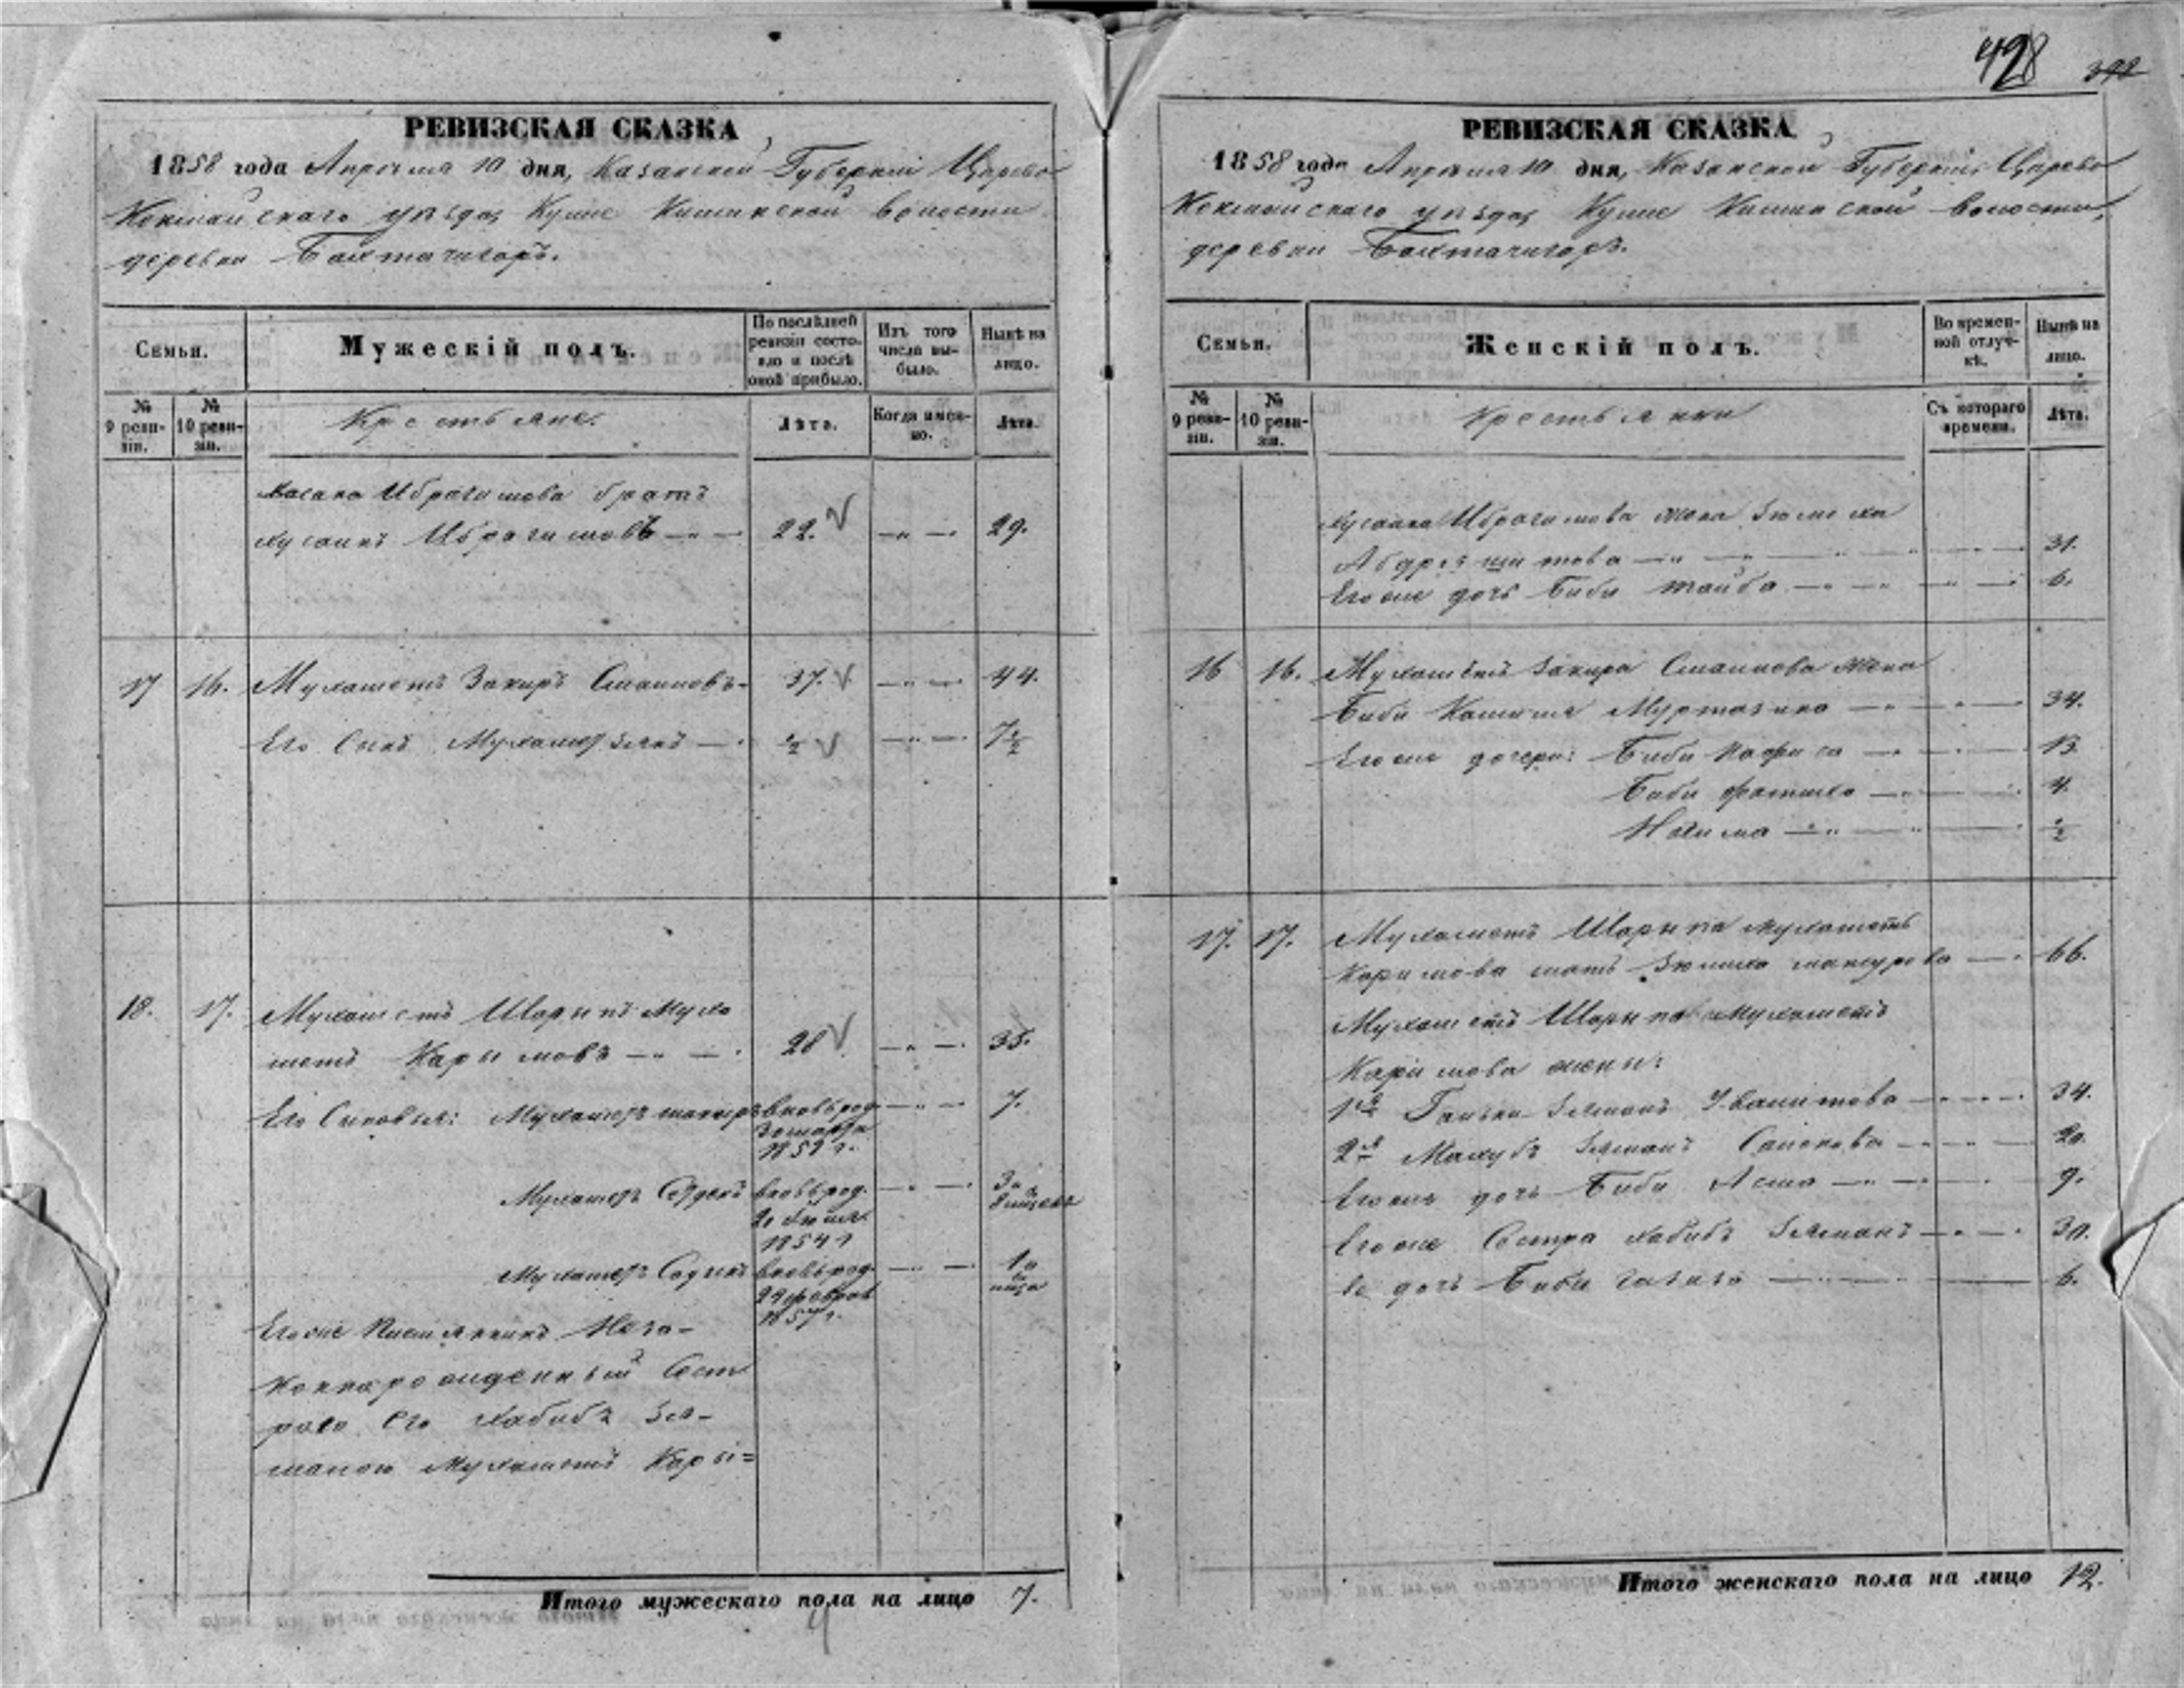 428
РЕВИЗСКАЯ СКАЗКА
1858 года Апреля 10 дня, Казанской Губерніи Царево
Кокшайскаго уѣзда, Кулле Киминской волости
деревни Бахтачигаръ.
Семьи.
Мужескій полъ.
По послѣдней ревизіи состояло и послѣ оной прибыло.
Изъ того числа выбыло.
Нынѣ на лицо.
№ 9 ревизіи.
№ 10 ревизіи.
Крестьяне.
Лѣта.
Когда именно.
Лѣта.
Хасана Ибрагимова братъ
Хусаинъ Ибрагимовъ 22. 29.
17 16. Мухаметъ Закиръ Смаиловъ 37. 44.
Его Сынъ Мухаметзянъ ½ 7½
18. 17. Мухаметъ Шарыпъ Муха
метъ Карымовъ 28 35.
Его Сыновья: Мухаметъ шакиръ вновь род. 7.
30 марта
1851 г.
Мухаметъ вновь род. 3 и
20 Июля 8 мѣсяц
1854 г
Мухаметъ Садыкъ вновь род. 1 и
24 феврал
1857 г.
Егоже Племянникъ Неза-
коннорожденный Сест
рою Его Хабибъ Зя-
маною Мухаметъ Кары=
Итого мужескаго пола на лицо 7.
РЕВИЗСКАЯ СКАЗКА
1858 года Апреля 10 дня, Казанской Губерніи, Царево
Кокшайскаго уѣзда, Кулле Киминской волости,
деревни Бахтачигаръ.
Семьи.
Женскій полъ.
Во временной отлучкѣ.
Нынѣ на лицо.
№ 9 ревизіи.
№ 10 ревизіи.
Крестьянки
Съ котораго времени.
Лѣта.
Хусаина Ибрагимова жена Зюлеха
Абдрезитова 31.
Егоже дочь Биби Тайба 6.
16 16. Мухаметъ Закира Смаилова жена
Биби Камиля Муртазина 34.
Егоже дочери: Биби Нафиса 13.
Биби Фатиха 4.
Халима ½
17. 17. Мухаметъ Шарыпа Мухаметъ
Каримова мать Зюлиха мансурова 66.
Мухаметъ Шарыпа Мухаметъ
Каримова жены:
1я Земанъ 34.
2я Махубъ Зяманъ 20.
Егоже дочь Биби Асма 9.
Егоже Сестра Хабибъ Зяманъ 30.
Ее дочь Биби 6.
Итого женскаго пола на лицо 12.